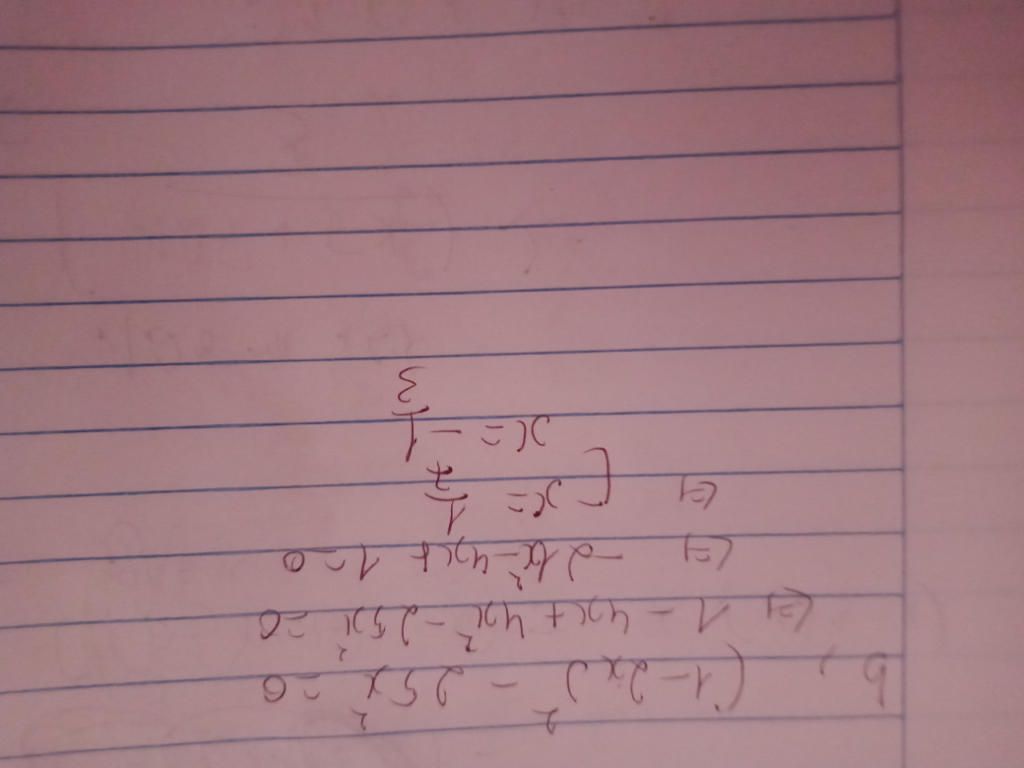 b, (1-2x)² - 25x² = 0
⇔ 1 - 4x + 4x² - 25x² = 0
⇔ -21x² - 4x + 1 = 0
⇔ [ x = 1/7
x = -1/3